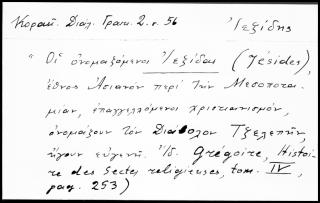 Κοραῆ. Διάλ. Γραικ. 2. σ. 56 Ἰεζίδης
"Οἱ ὀνομαζόμενοι Ἰεζίδαι (Jésides),
ἔθνος Ἀσιανὸν περὶ τὴν Μεσοποτα-
μίαν, ἐπαγγελλόμενοι χριστιανισμόν,
ὀνομάζουν τὸν Διάβολον Τζελεπήν,
ἤγουν εὐγενῆ. Ἰδ. Grégoire, Histoi-
re des sectes religieuses, tom. IV,
pag. 253)